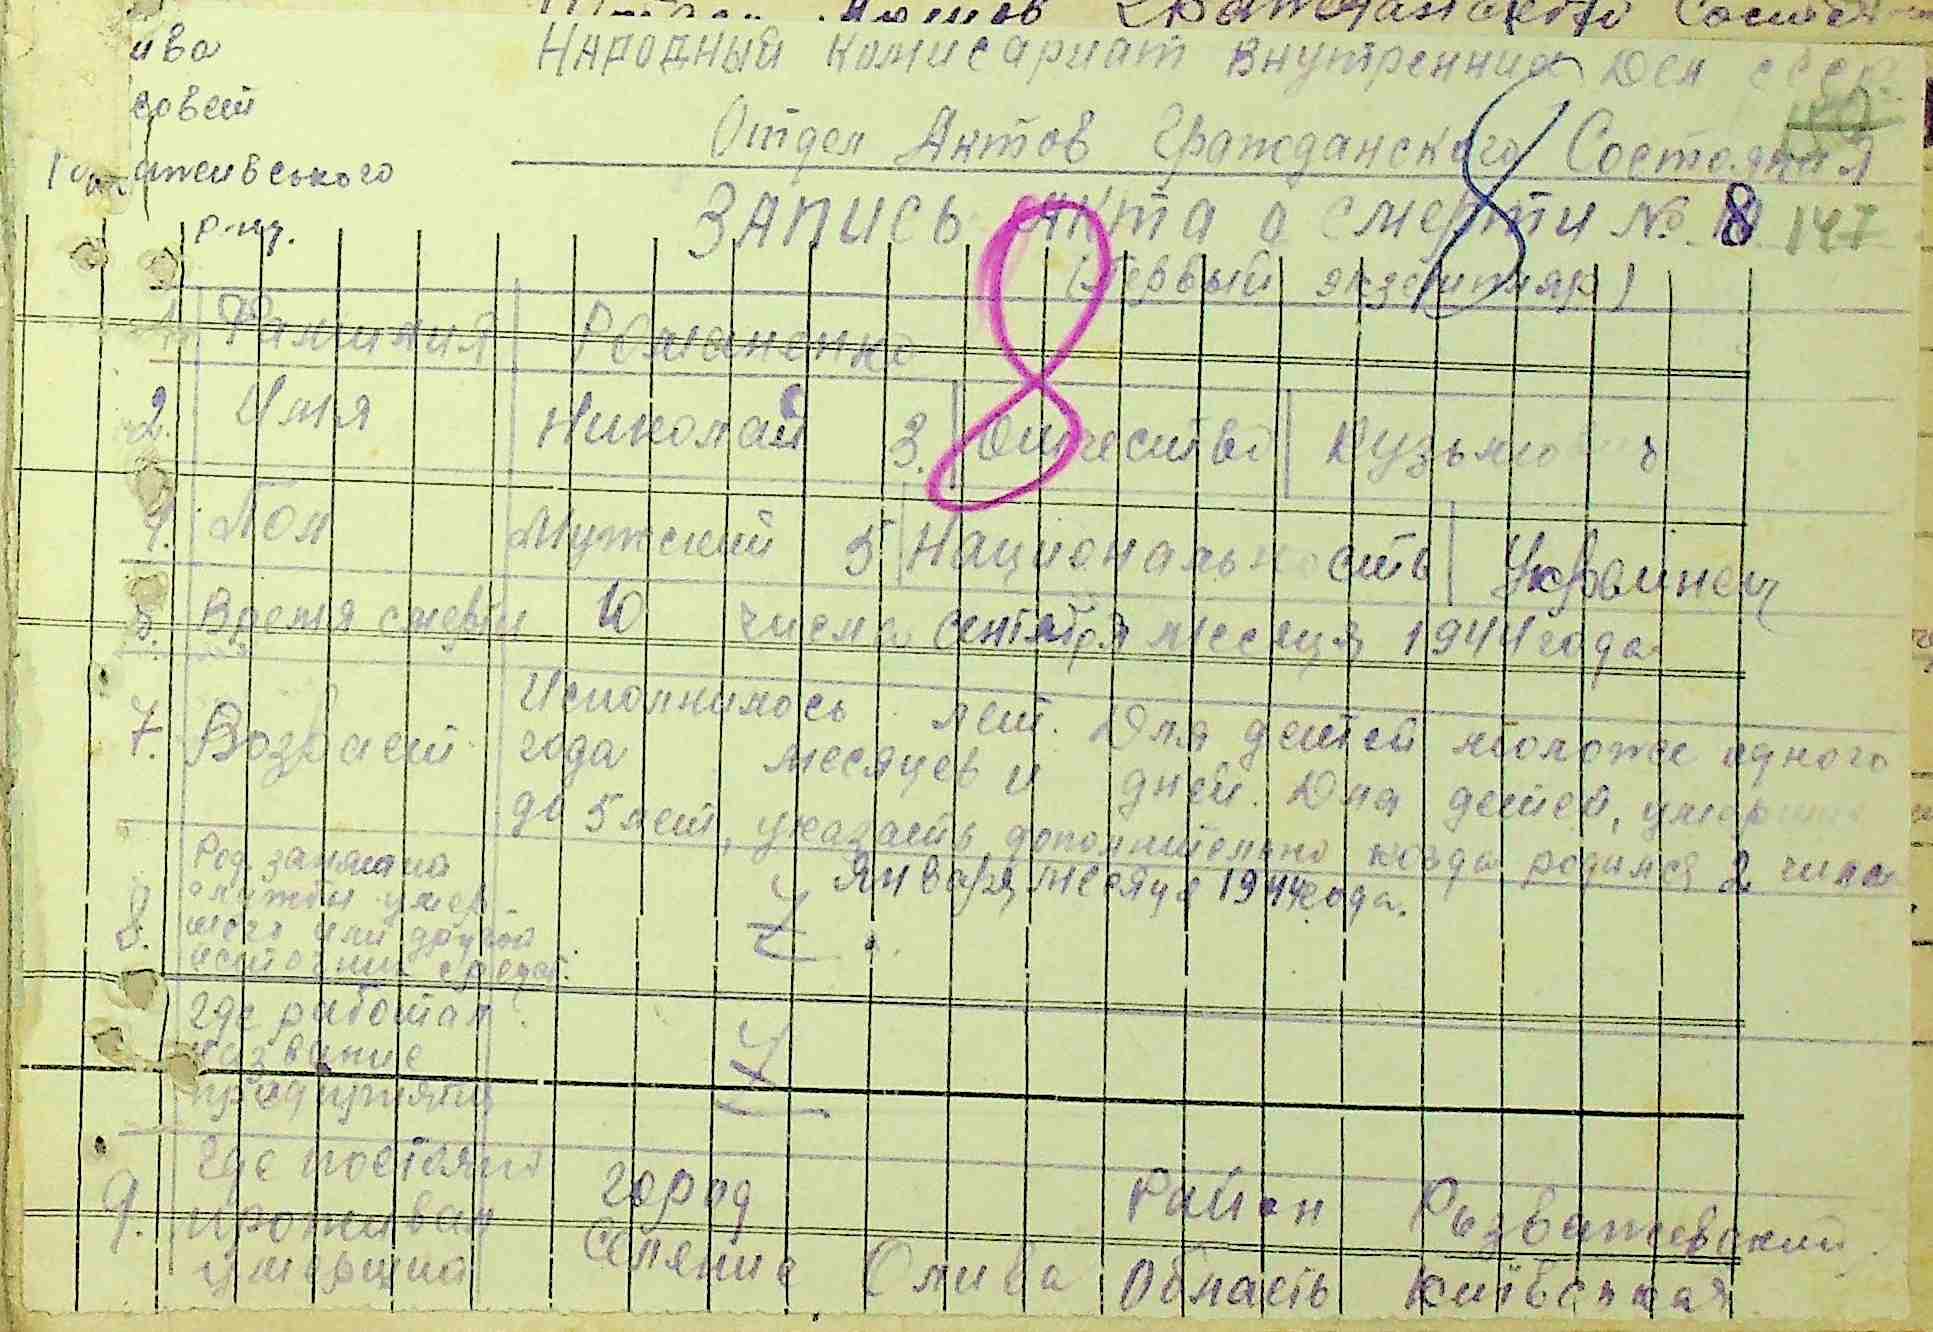 Народный комисариат внутренних Дел СССР.
ива
совет
Отдел Актов Гражданского Состояния
ЗАПИСЬ акта о смерти № 8 147
р-ну.
(Первый экземпляр)
1. Фамилия Романенко
2. Имя Николай 3. Отчество Кузьмович
4. Пол Мужский 5 Национальность Украінец
6. Время смерти 10 числа сентября месяца 1944 года
7. Возраст Исполнилось лет. Для детей моложе одного
года месяцев и дней. Для детей, умерших
до 5 лет, указать дополнительно когда родился 2 числа
Января месяца 1944 года.
8. Род занятия
службы умер
шего или другой
источник средст.
Z
где работал
название
предприятия
Z
9. Где постоянно
проживал
умерший
город Район Розважевский
Селение Олива Область Київська
8
8